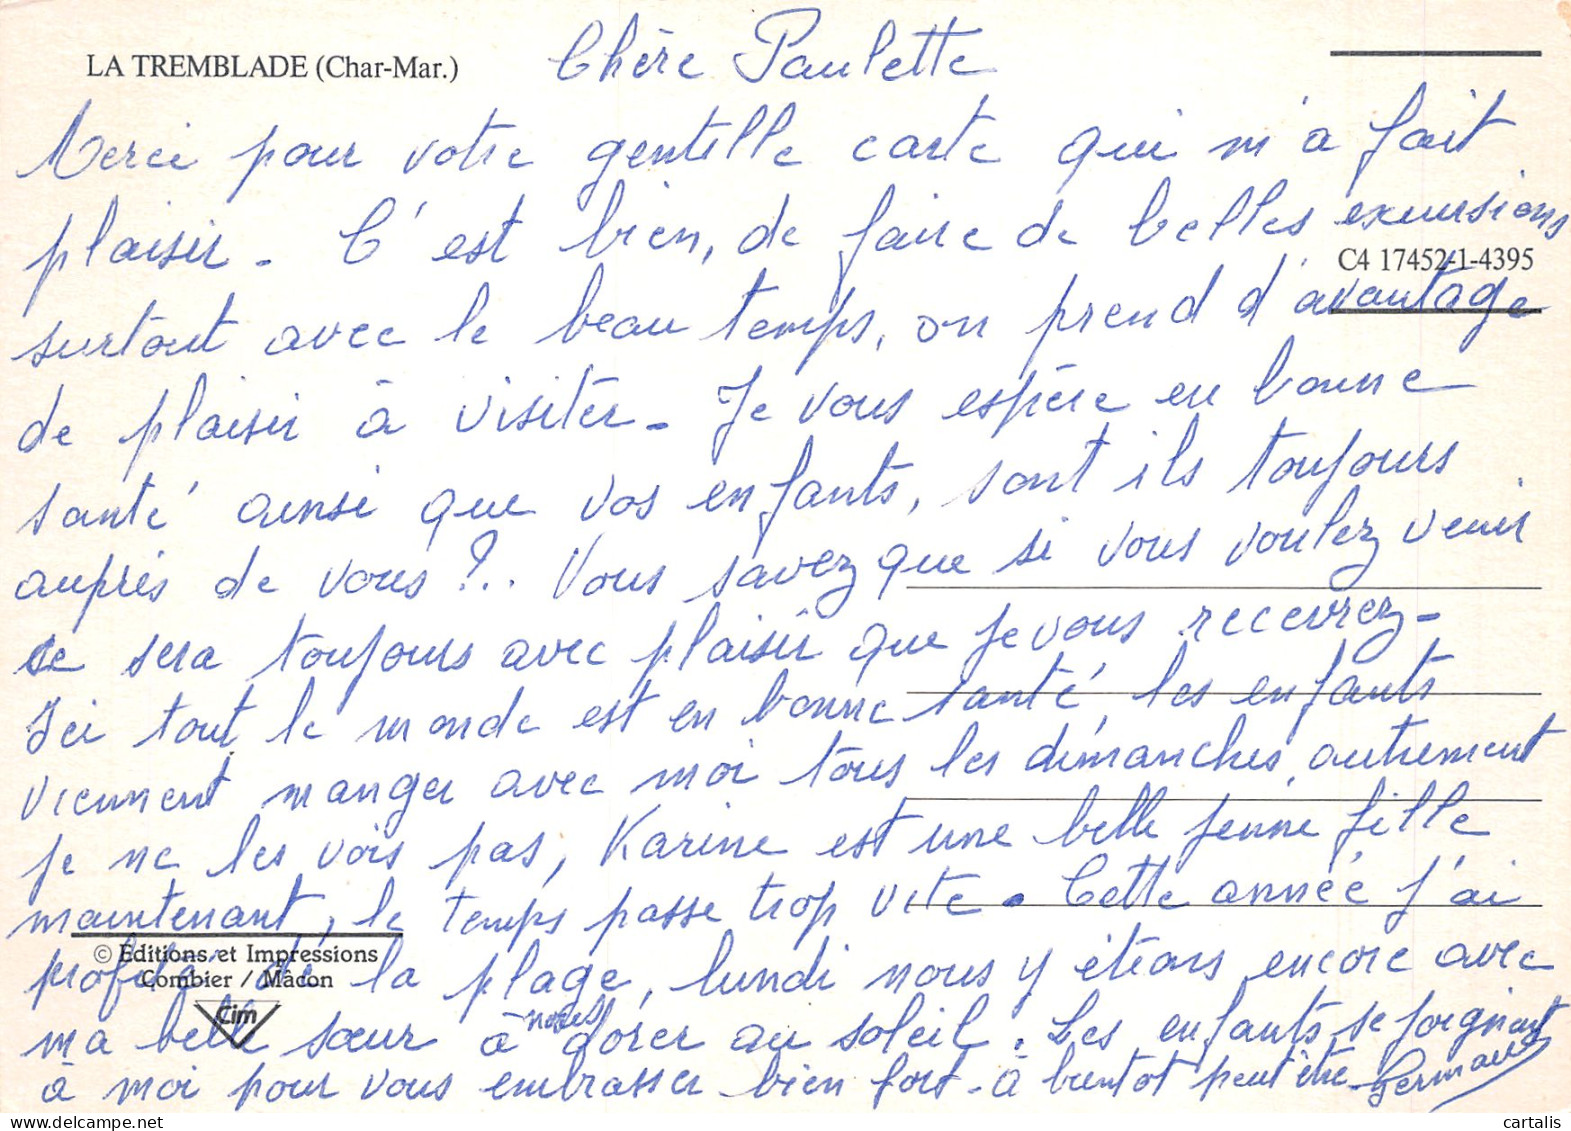 LA TREMBLADE (Char-Mar.)
Chère Paulette
Merci pour votre gentille carte qui m'a fait
plaisir - C'est bien, de faire de belles excursions
C4 17452-1-4395
surtout avec le beau temps, on prend d'avantage
de plaisir à visiter - Je vous espère en bonne
santé ainsi que vos enfants, sont ils toujours
auprès de vous ?.. Vous savez que si vous voulez venir
ce sera toujours avec plaisir que je vous recevrez -
Ici tout le monde est en bonne santé, les enfants
viennent manger avec moi tous les dimanches, autrement
je ne les vois pas, Karine est une belle jeune fille
maintenant, le temps passe trop vite. Cette année j'ai
profité de la plage, lundi nous y étions encore avec
© Editions et Impressions
Combier / Mâcon
Cim
ma belle sœur à nous dorer au soleil. Les enfants se joignent
à moi pour vous embrasser bien fort - à bientot peut être - Germaine
cartalis